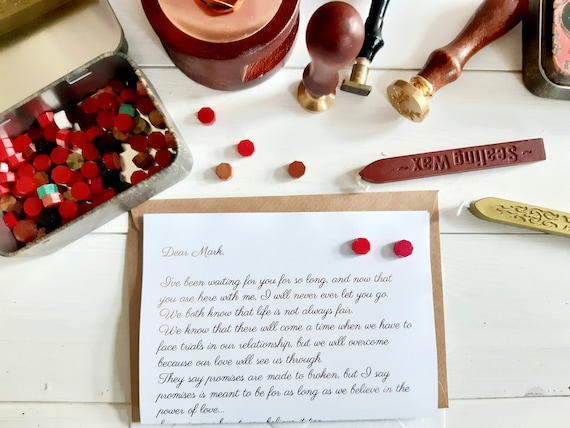 ~ Sealing Wax ~
Dear Mark,
I've been waiting for you for so long, and now that
you are here with me, I will never ever let you go.
We both know that life is not always fair.
We know that there will come a time when we have to
face trials in our relationship, but we will overcome
because our love will see us through.
They say promises are made to broken, but I say
promises is meant to be for as long as we believe in the
power of love...